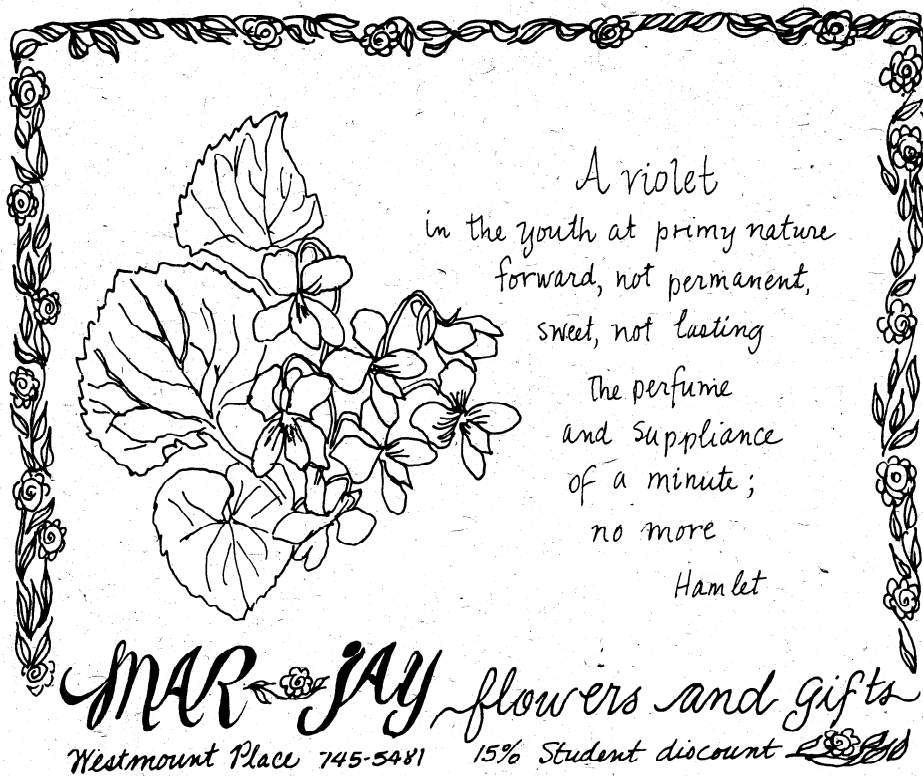 A violet
in the youth at primy nature
forward, not permanent,
sweet, not lasting
The perfume
and suppliance
of a minute;
no more
Hamlet
MAR-JAY flowers and gifts
Westmount Place 745-5481 15% Student discount